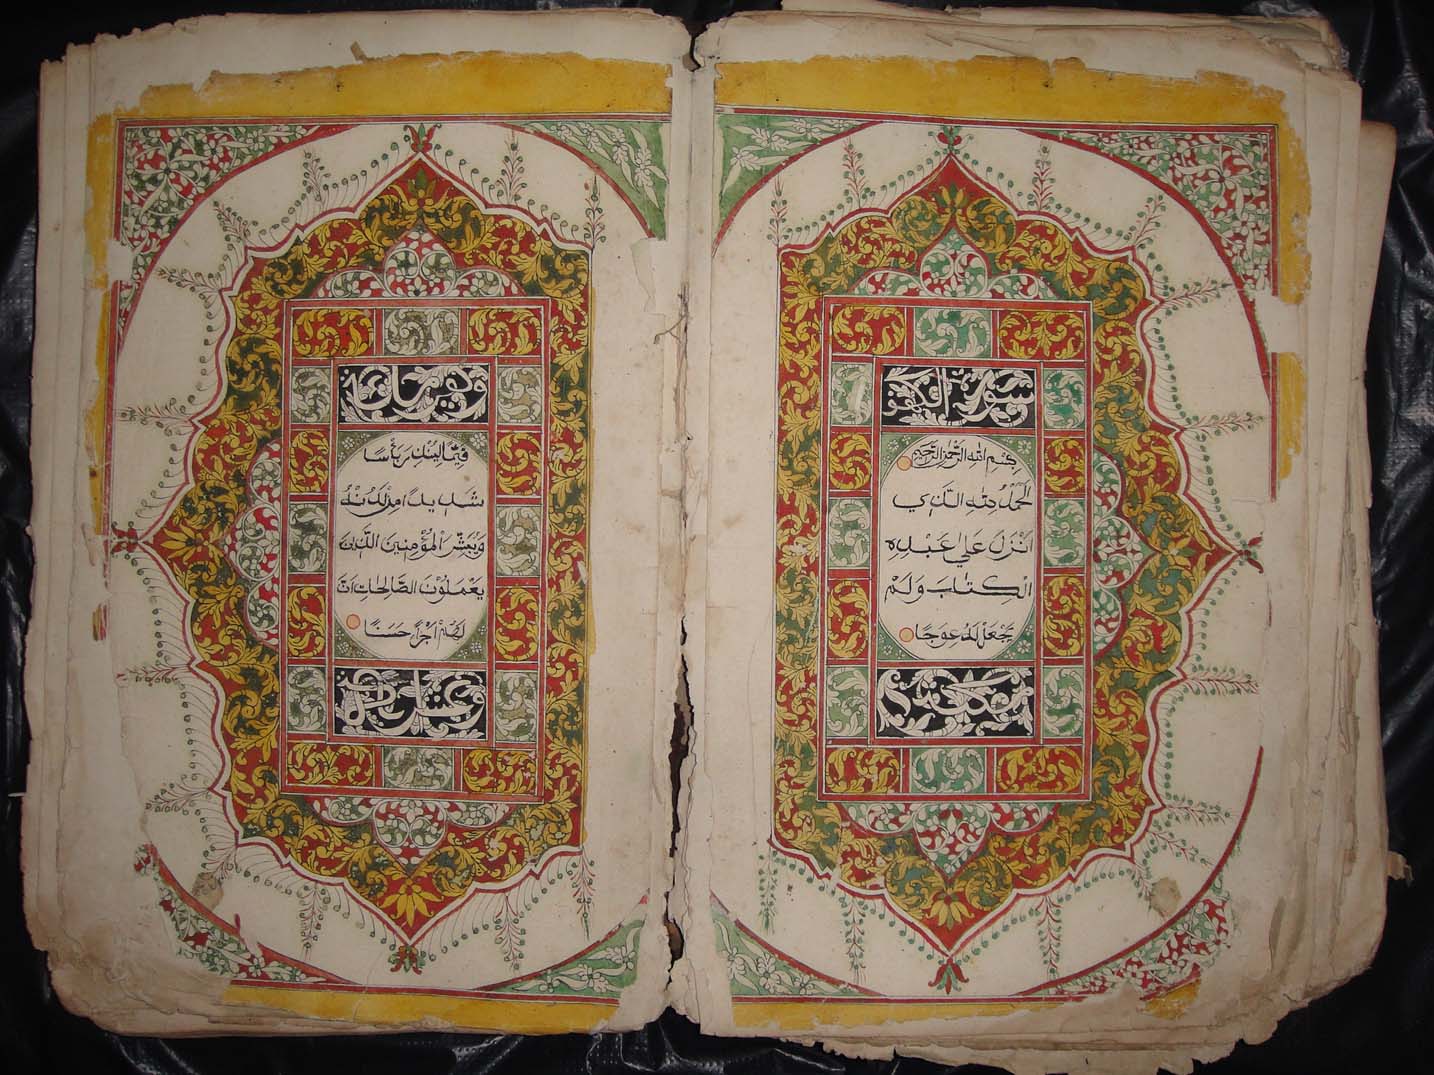 سورة الكهف
بِسْمِ اللهِ الرَّحْمٰنِ الرَّحِيمِ
الْحَمْدُ لِلّٰهِ الَّذِي
اَنْزَلَ عَلٰى عَبْدِهِ
الْكِتٰبَ وَلَمْ
يَجْعَلْ لَهُ عِوَجًا
مكية
قَيِّمًا لِيُنْذِرَ بَأْسًا
شَدِيدًا مِنْ لَدُنْهُ
وَيُبَشِّرَ الْمُؤْمِنِينَ الَّذِينَ
يَعْمَلُونَ الصَّالِحَاتِ اَنَّ
لَهُمْ اَجْرًا حَسَنًا